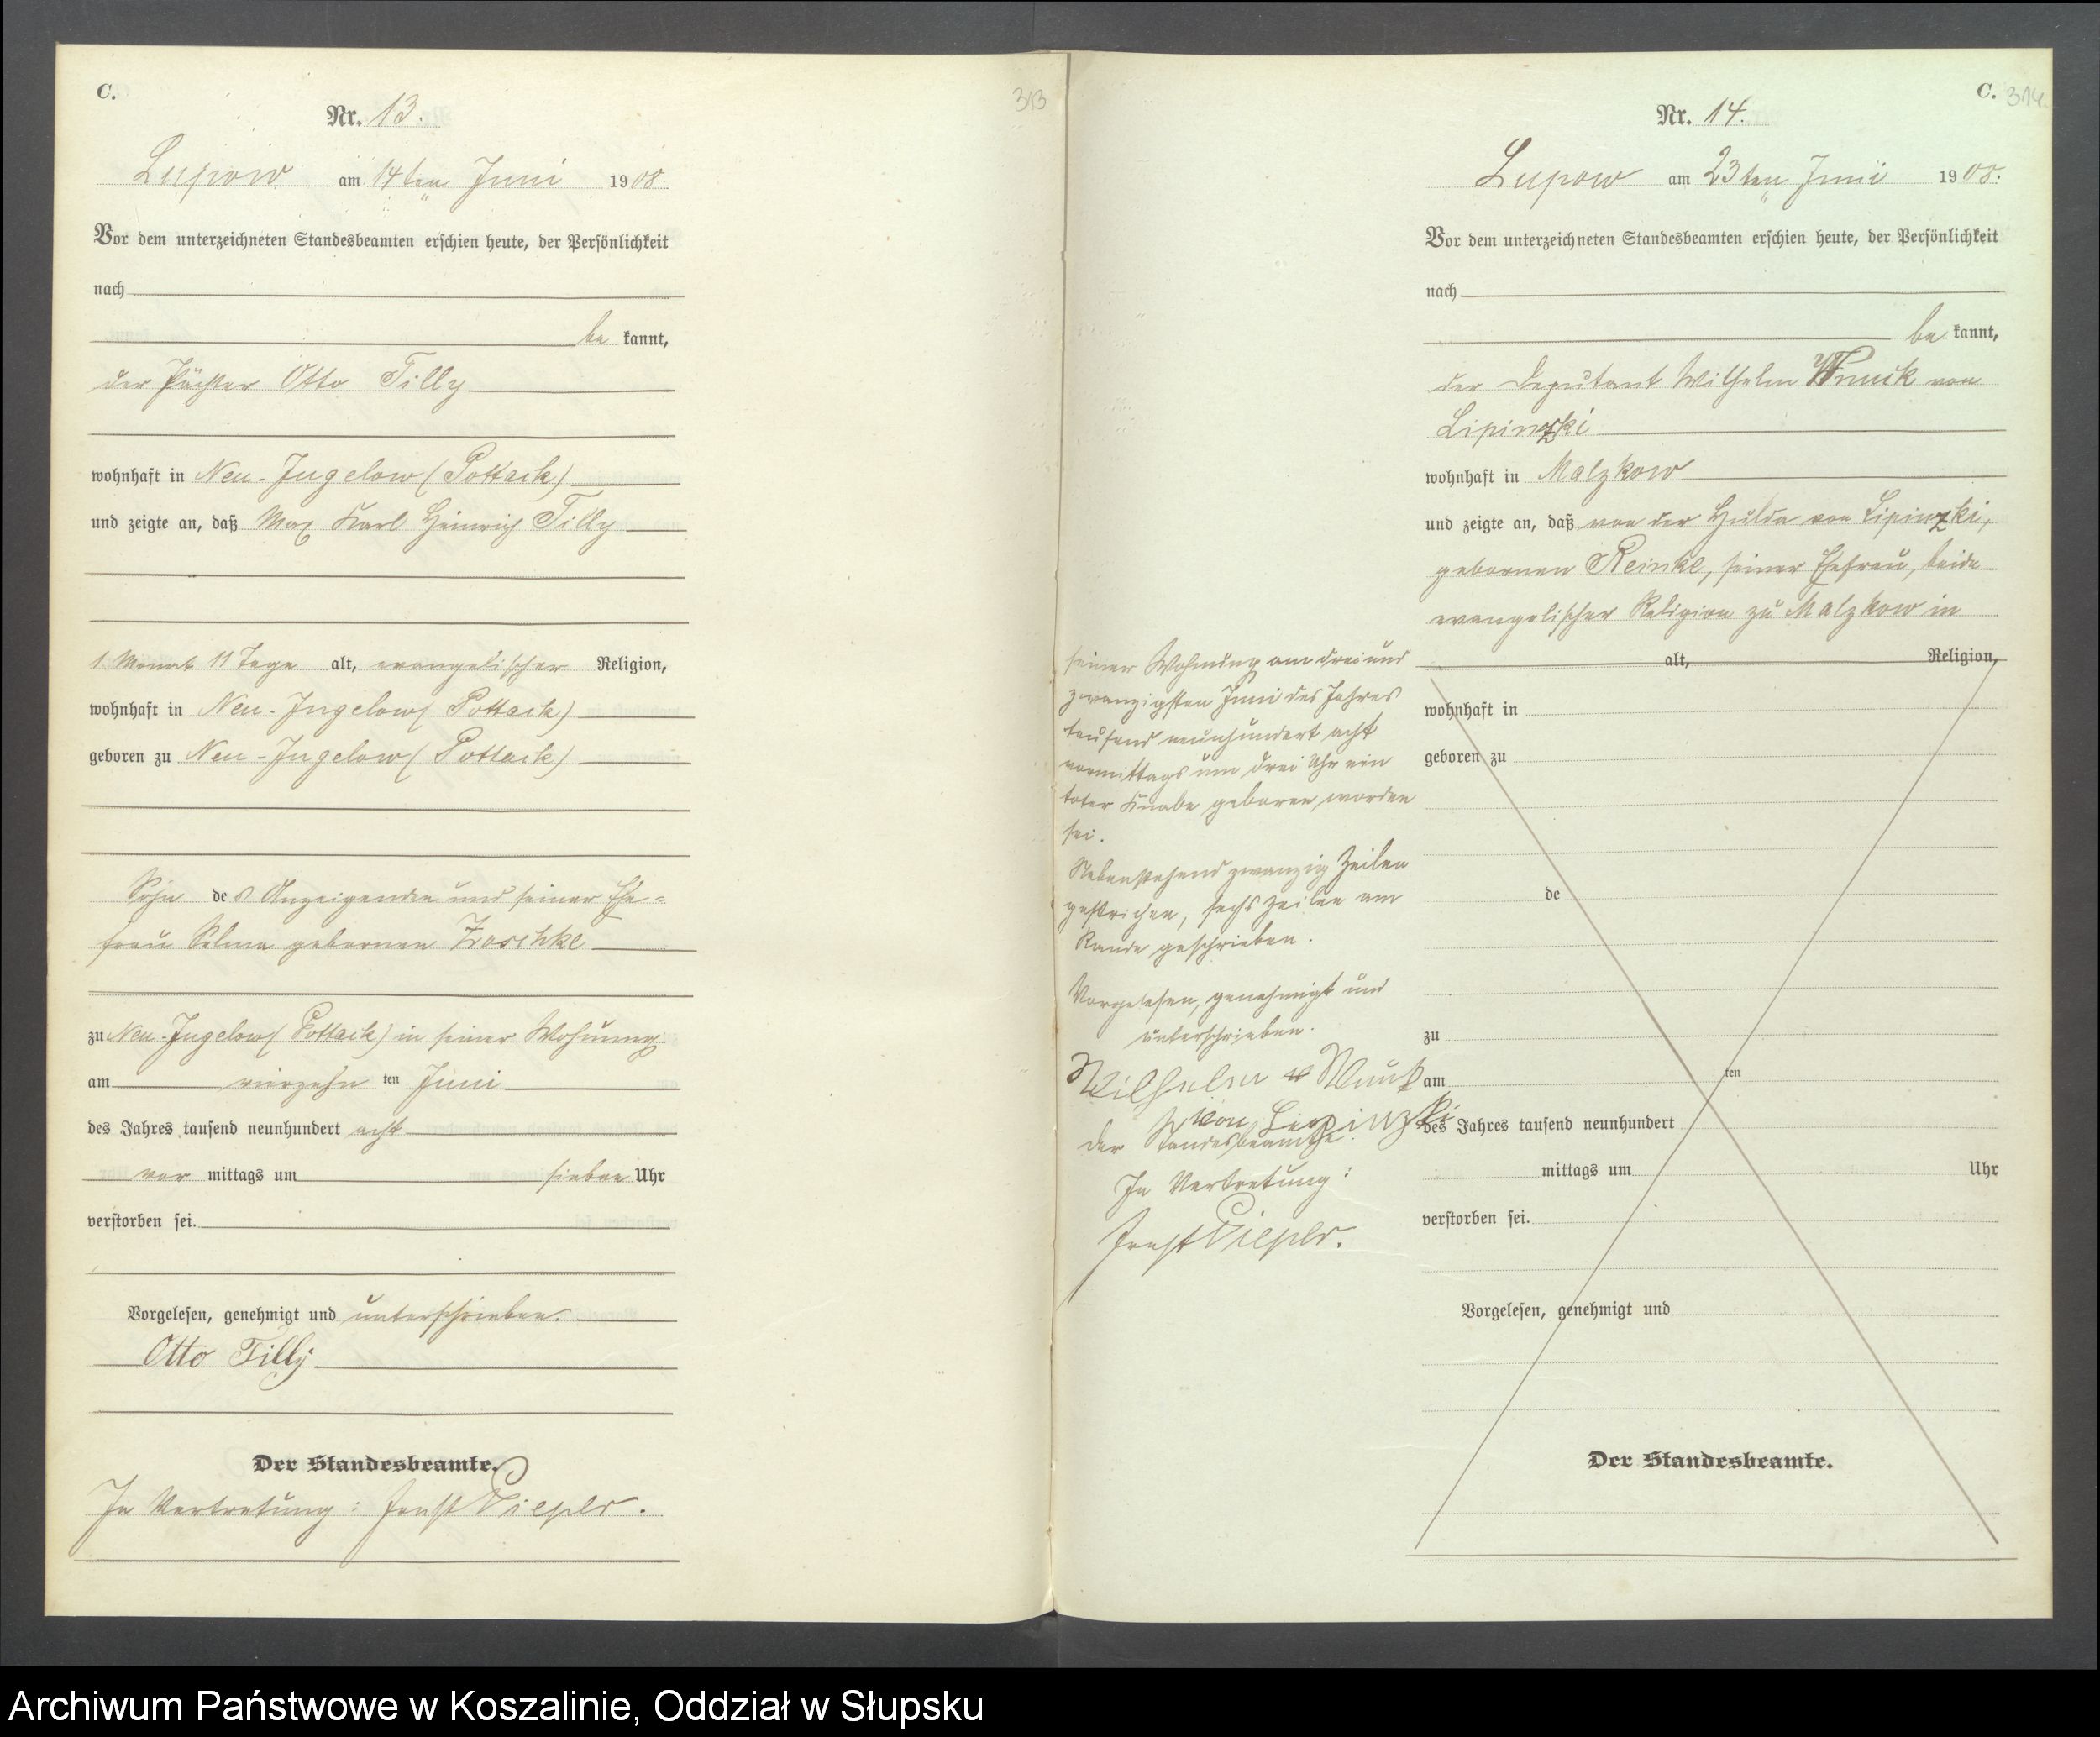 C.
313
Nr. 13.
Lupow am 14ten Juni 1908.
Vor dem unterzeichneten Standesbeamten erschien heute, der Persönlichkeit
nach
be kannt,
der Pächter Otto Tilly
wohnhaft in Neu-Jugelow (Pottack)
und zeigte an, daß Max Karl Heinrich Tilly
1 Monat 11 Tage alt, evangelischer Religion,
wohnhaft in Neu-Jugelow (Pottack)
geboren zu Neu-Jugelow (Pottack)
Sohn des Anzeigenden und seiner Ehe=
frau Selma gebornen Zroschke
zu Neu-Jugelow (Pottack) in seiner Wohnung
am vierzehn ten Juni
des Jahres tausend neunhundert acht
vor mittags um sieben Uhr
verstorben sei.
Vorgelesen, genehmigt und unterschrieben.
Otto Tilly
Der Standesbeamte.
In Vertretung: Ernst Piepla.
C. 314.
Nr. 14.
Lupow am 23ten Juni 1908.
Vor dem unterzeichneten Standesbeamten erschien heute, der Persönlichkeit
nach
be kannt,
der Deputant Wilhelm Wnuck von
Lipinzki
wohnhaft in Malzkow
und zeigte an, daß von der Hulda von Lipinzki,
gebornen Reinke, seiner Ehefrau, beide
evangelischer Religion zu Malzkow in
alt, Religion,
wohnhaft in
geboren zu
de
zu
am ten
des Jahres tausend neunhundert
mittags um Uhr
verstorben sei.
Vorgelesen, genehmigt und
Der Standesbeamte.
seiner Wohnung am drei und
zwanzigsten Juni des Jahres
tausend neunhundert acht
vormittags um drei Uhr ein
toter Knabe geboren worden
sei.
Nebenstehend zwanzig Zeilen
gestrichen, sechs Zeilen am
Rande geschrieben.
Vorgelesen, genehmigt und
unterschrieben.
Wilhelm Wnuk
von Lipinzki
der Standesbeamte.
In Vertretung:
Ernst Piepla.
Archiwum Państwowe w Koszalinie, Oddział w Słupsku